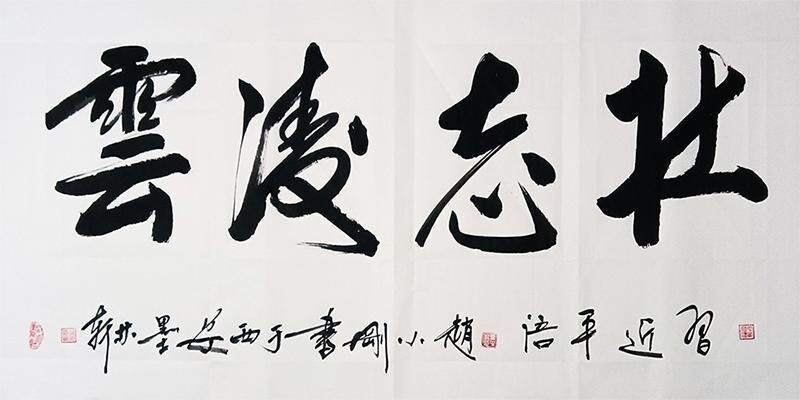 壮志凌雲
習近平語 趙小剛書于西安墨林軒